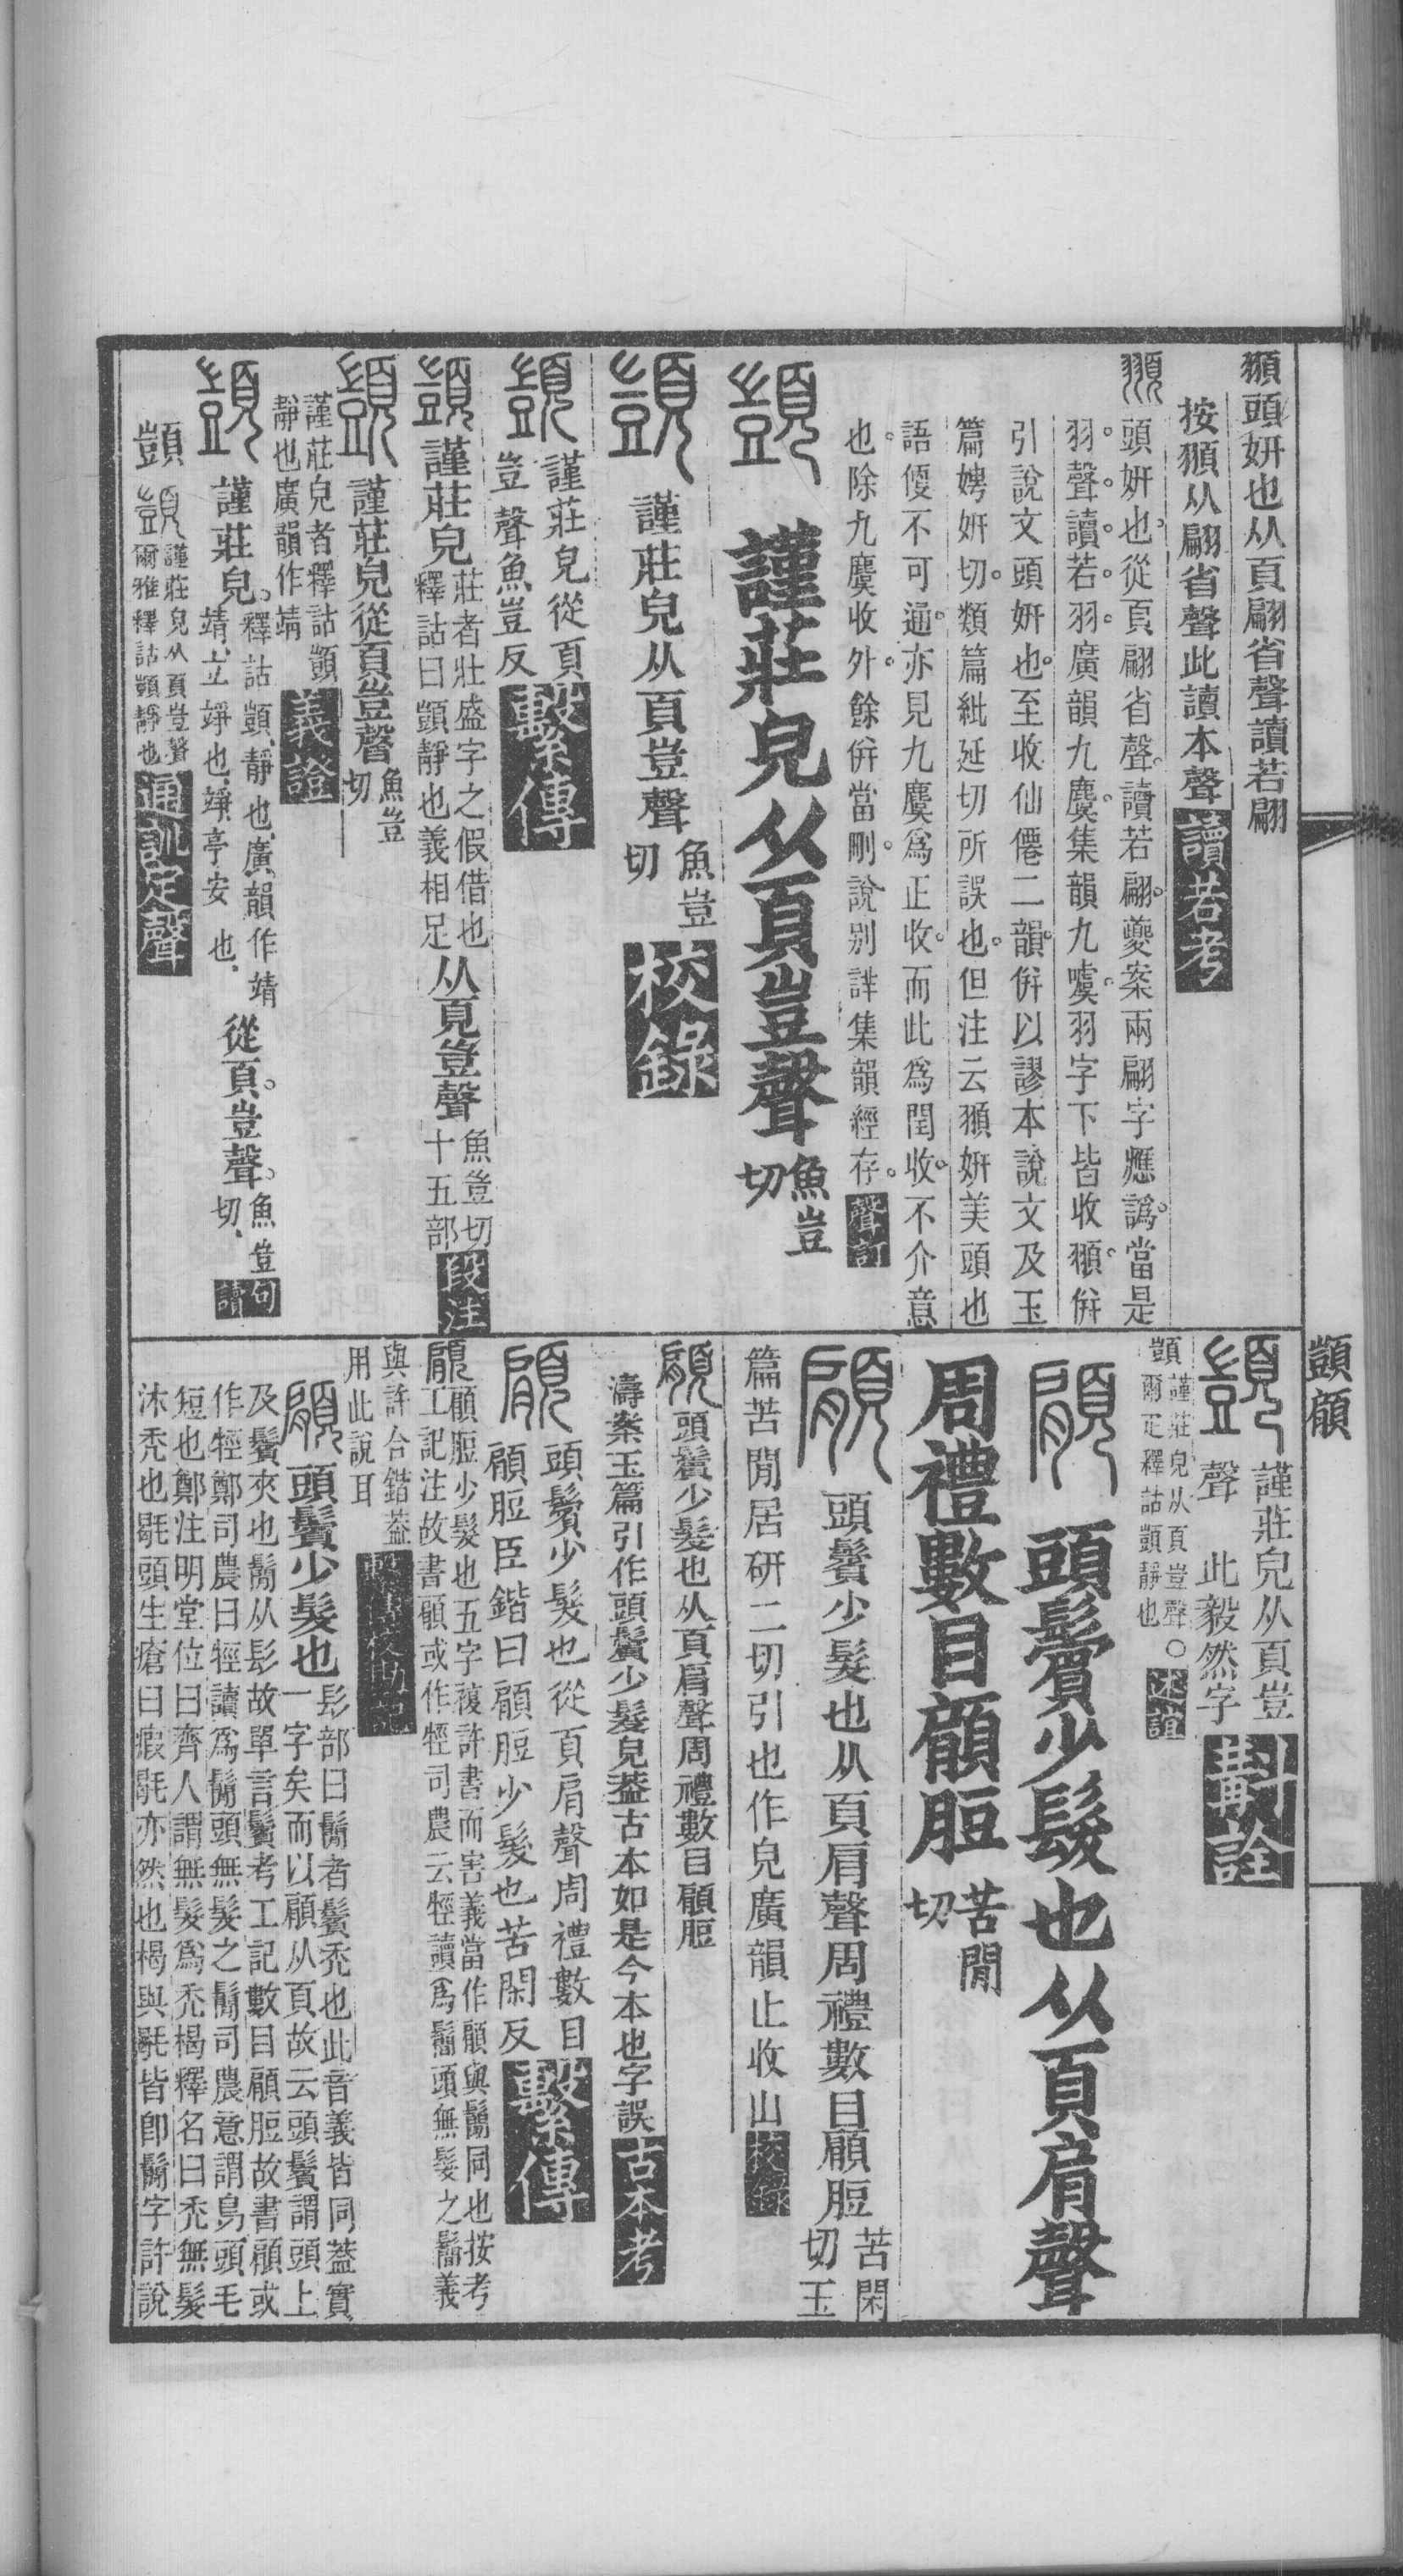 䫖頭妍也从頁翩省聲讀若翩
按䫖从翩省聲此讀本聲讀若考
頭妍也從頁翩省聲讀若翩夔案兩翩字應譌當是
羽聲讀若羽廣韻九麌集韻九噳羽字下皆收䫖併
引說文頭妍也至收仙僊二韻併以謬本說文及玉
篇娉妍切類篇紕延切所誤也但注云䫖妍美頭也
語偃不可通亦見九麌爲正收而此爲閏收不介意
也除九麌收外餘併當刪說别詳集韻經存聲訂
顗 謹莊皃从頁豈聲魚豈切
顗 謹莊皃从頁豈聲魚豈切校錄
顗 謹莊皃從頁豈聲魚豈反繫傳
顗謹莊皃莊者壯盛字之假借也釋詁曰顗靜也義相足从頁豈聲魚豈切十五部段注
顗謹莊皃從頁豈聲魚豈切
謹莊皃者釋詁顗靜也廣韻作靖義證
顗謹莊皃釋詁顗靜也廣韻作靖靖立竫也竫亭安也從頁豈聲魚豈切句讀
顗顗謹莊皃从頁豈聲爾雅釋詁顗靜也通訓定聲
顗顅
顗謹莊皃从頁豈聲 此毅然字斠詮
顗謹莊皃从頁豈聲○爾疋釋詁顗靜也述誼
顅 頭鬢少髮也从頁肩聲
周禮數目顅脰苦閒切
顅 頭鬢少髮也从頁肩聲周禮數目顅脰苦閑切玉
篇苦閒居研二切引也作皃廣韻止收山校錄
顅頭鬢少髮也从頁肩聲周禮數目顅脰
濤案玉篇引作頭鬢少髮皃葢古本如是今本也字誤古本考
顅頭鬢少髮也從頁肩聲周禮數目顅脰臣鍇曰顅脰少髮也苦閑反繫傳
顅顅脰少髮也五字複許書而害義當作顅與鬜同也按考工記注故書顅或作牼司農云牼讀爲鬜頭無髮之鬜義
與許合鍇葢用此說耳繫傳校勘記
顅頭鬢少髮也髟部曰鬜者鬢禿也此音義皆同葢實一字矣而以顅从頁故云頭鬢謂頭上
及鬢夾也鬜从髟故單言鬢考工記數目顅脰故書顅或作牼鄭司農曰牼讀爲鬜頭無髮之鬜司農意謂鳥頭毛
短也鄭注明堂位曰齊人謂無髮爲禿楬釋名曰禿無髮沐禿也毼頭生瘡曰瘕毼亦然也楬與毼皆卽鬜字許說